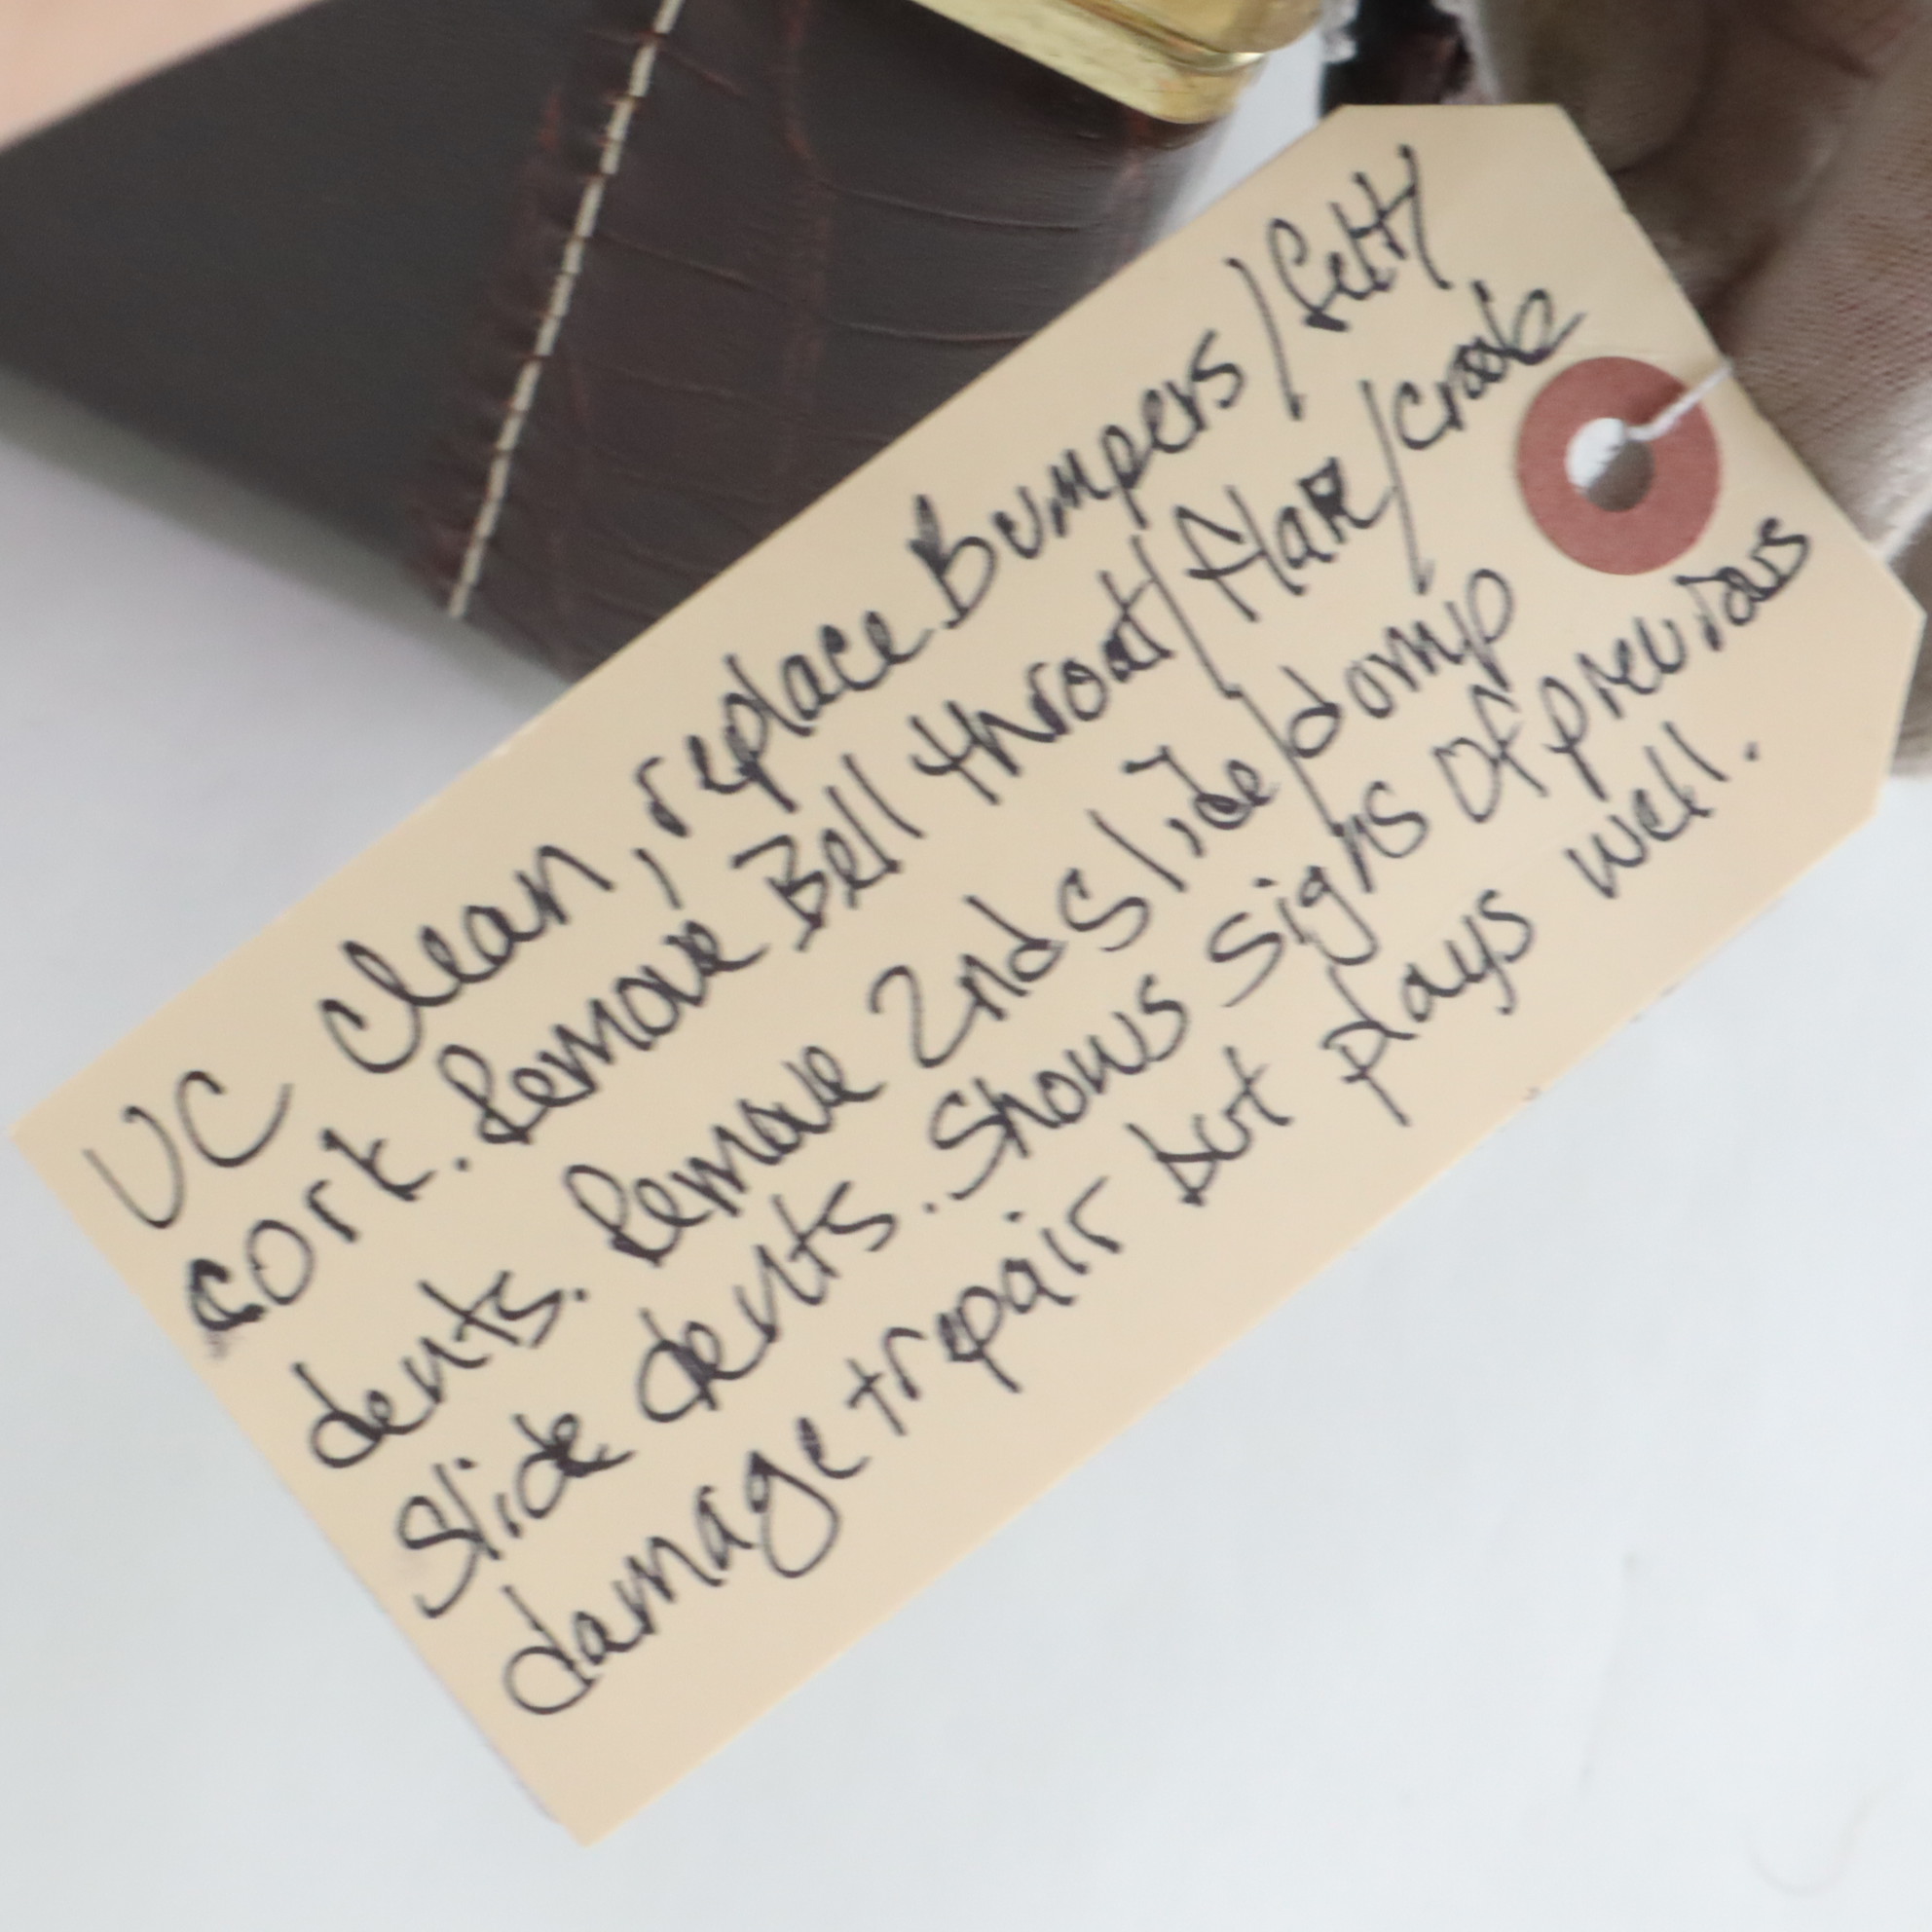 UC Clean, replace Bumpers/felt/
cork. Remove Bell throat/flare/crook
dents. Remove 2nd slide/dump
slide dents. Shows signs of previous
damage + repair but plays well.